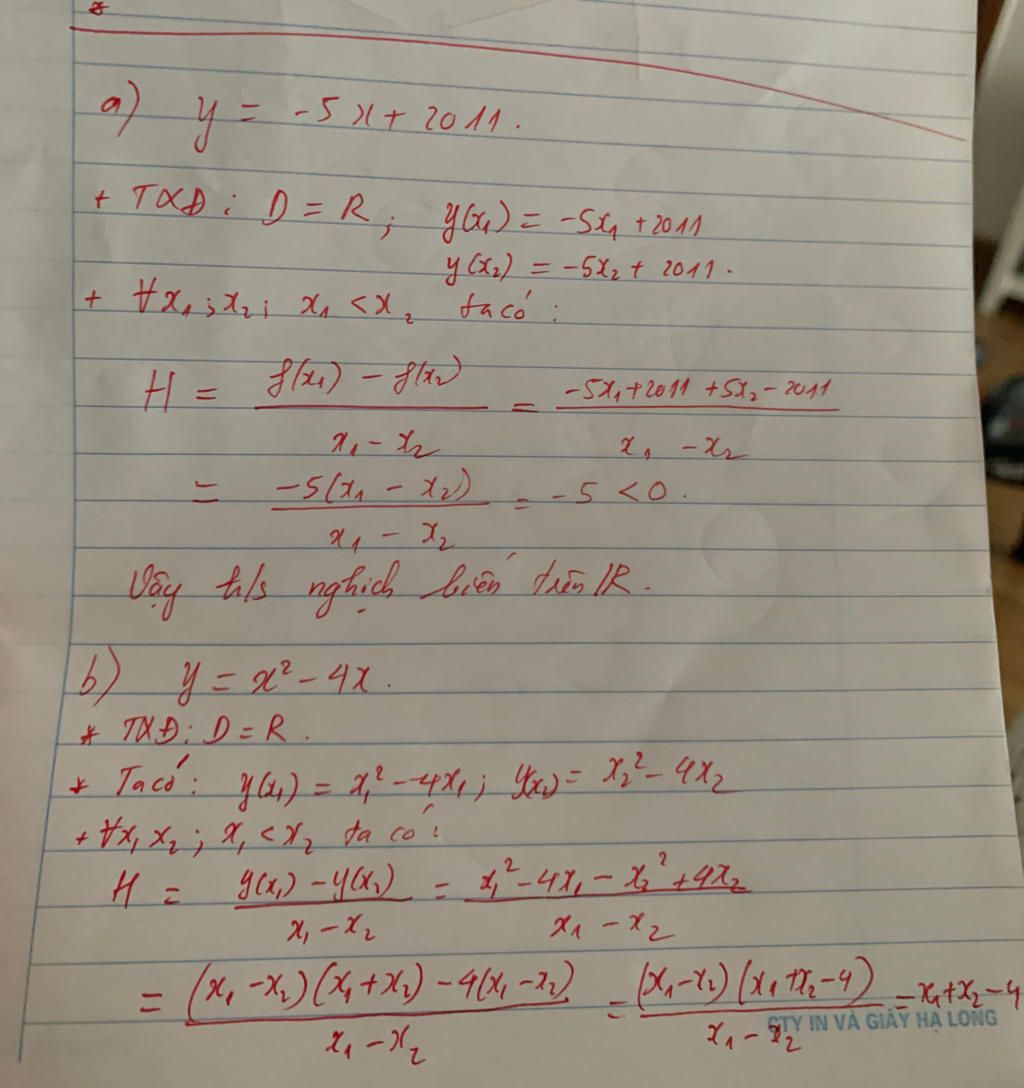 a) y = -5x + 2011.
+ TXĐ : D = R ; y(x₁) = -5x₁ + 2011
y(x₂) = -5x₂ + 2011.
+ ∀x₁ ; x₂ ; x₁ < x₂ ta có :
H = \frac{f(x₁) - f(x₂)}{x₁ - x₂} = \frac{-5x₁ + 2011 + 5x₂ - 2011}{x₁ - x₂}
= \frac{-5(x₁ - x₂)}{x₁ - x₂} = -5 < 0.
Vậy h/s nghịch biến trên R.
b) y = x² - 4x.
* TXĐ : D = R.
* Ta có : y(x₁) = x₁² - 4x₁ ; y(x₂) = x₂² - 4x₂
+ ∀x₁ x₂ ; x₁ < x₂ ta có :
H = \frac{y(x₁) - y(x₂)}{x₁ - x₂} = \frac{x₁² - 4x₁ - x₂² + 4x₂}{x₁ - x₂}
= \frac{(x₁ - x₂)(x₁ + x₂) - 4(x₁ - x₂)}{x₁ - x₂} = \frac{(x₁ - x₂)(x₁ + x₂ - 4)}{x₁ - x₂} = x₁ + x₂ - 4
CTY IN VÀ GIẤY HẠ LONG